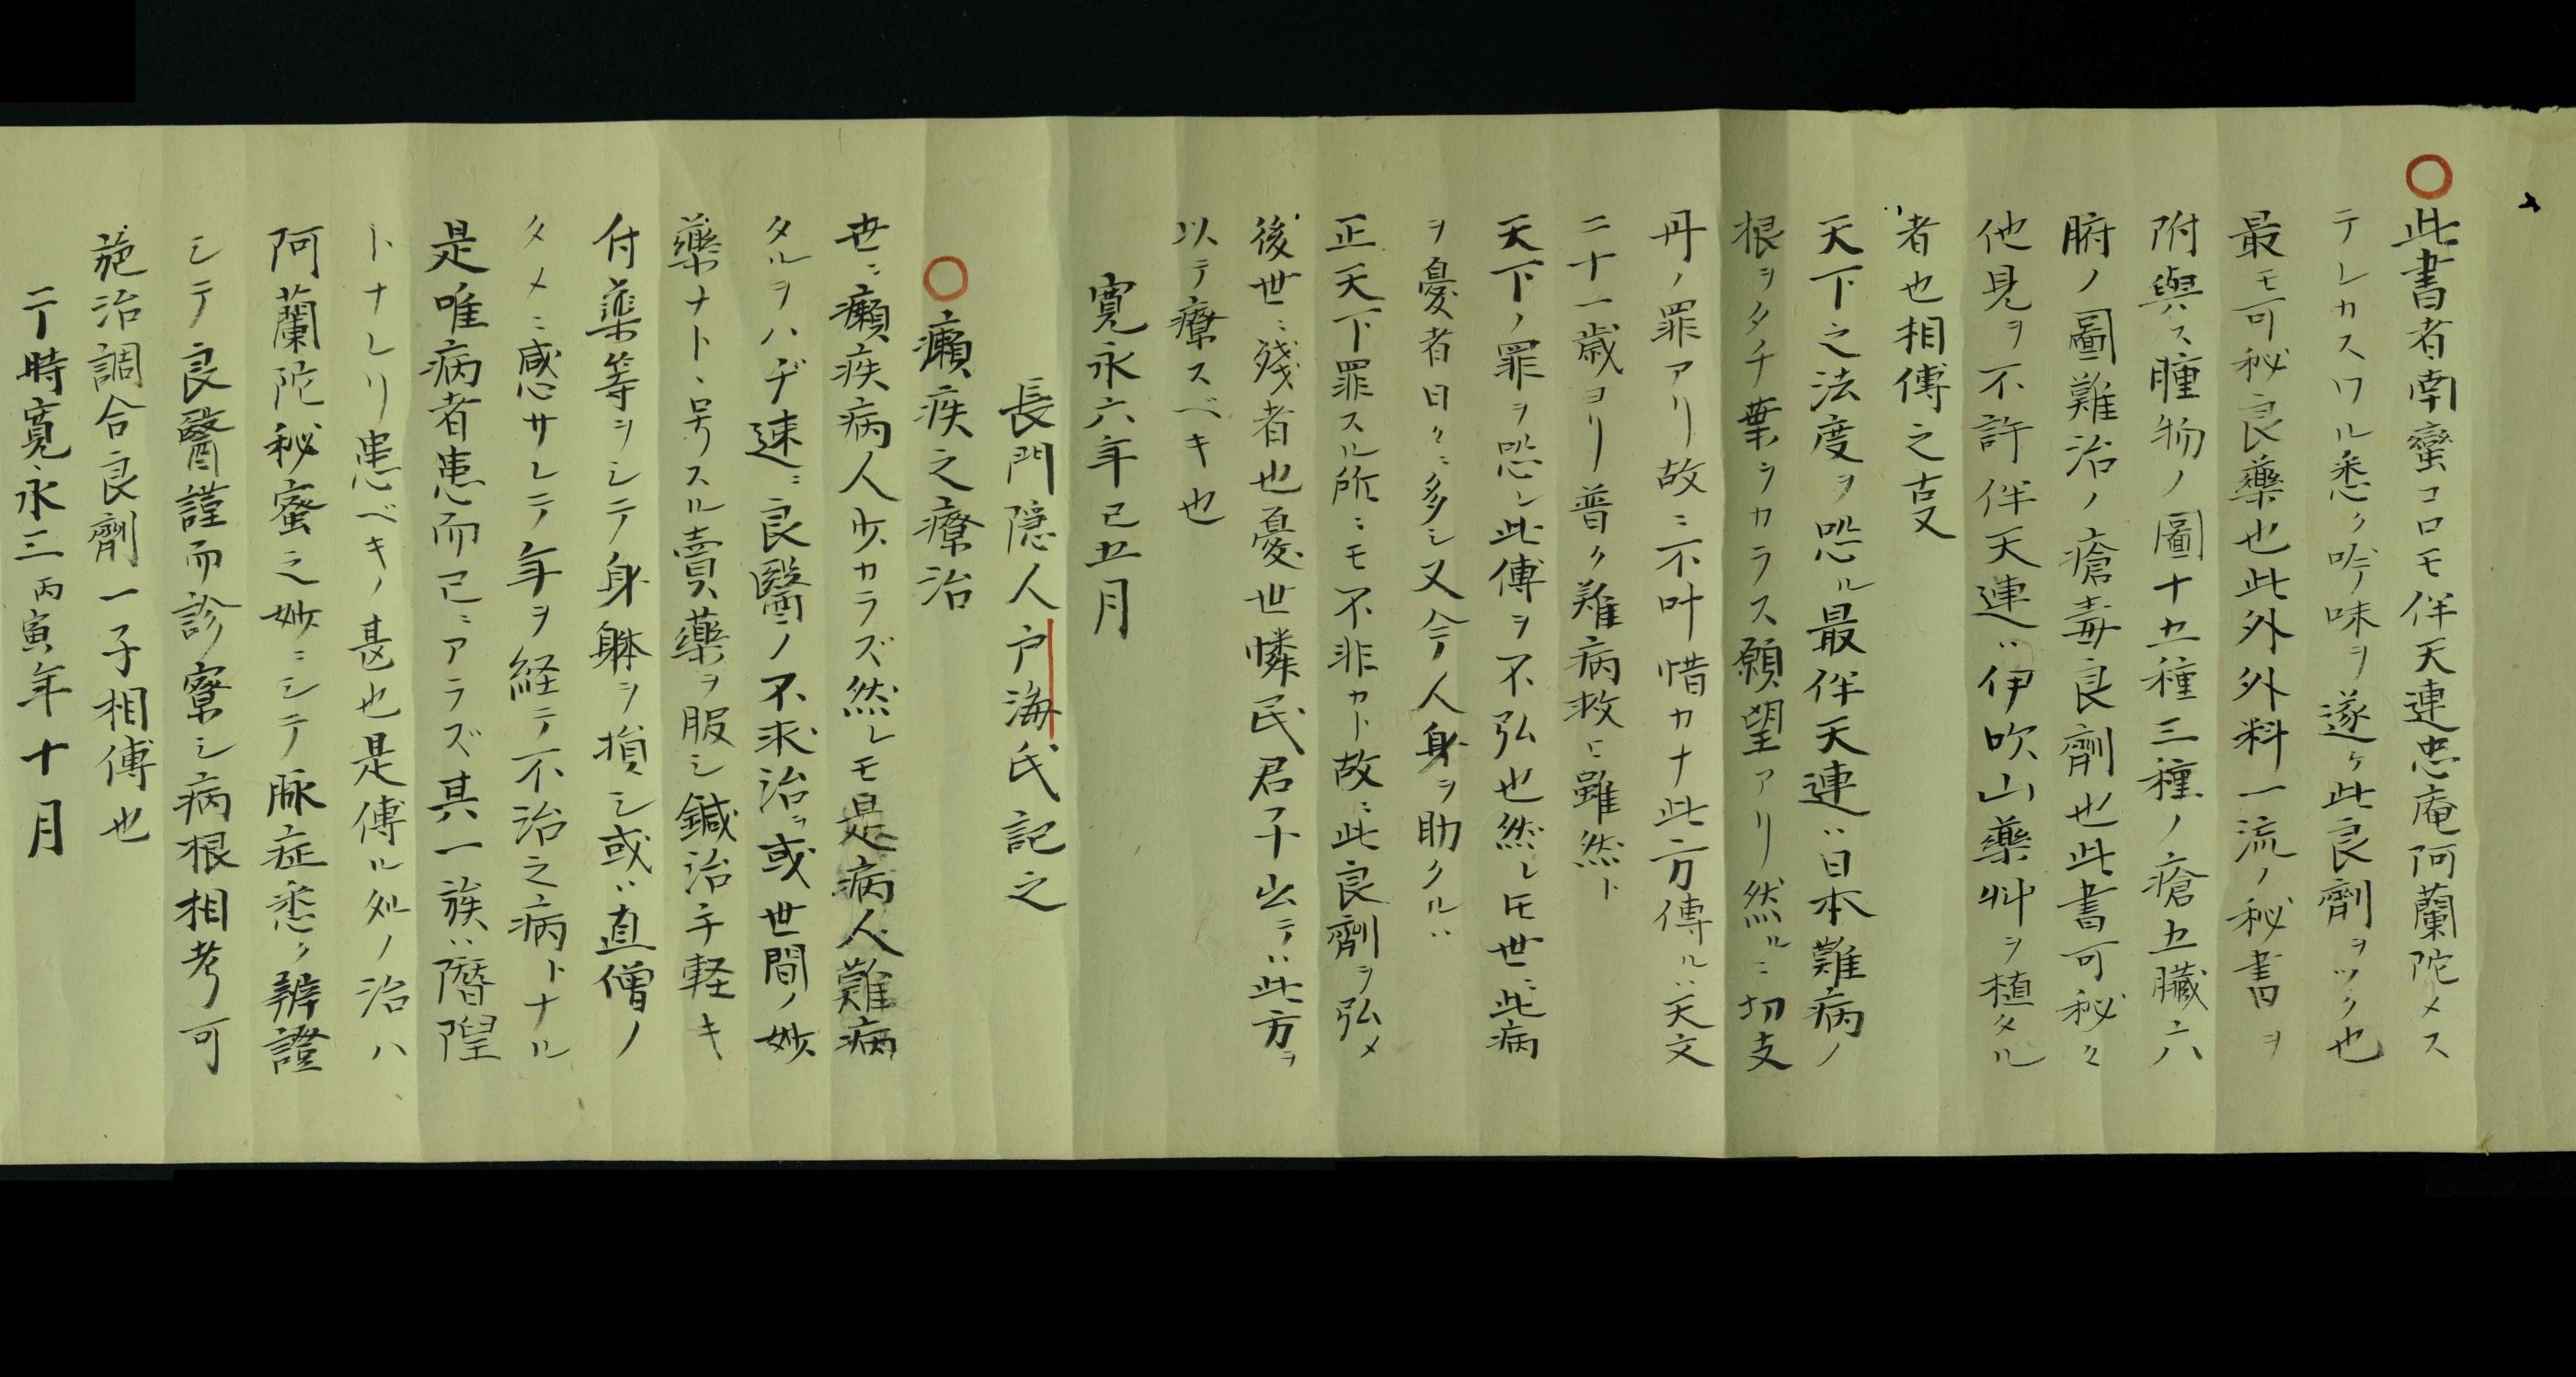 ○此書者南蛮コロモ伴天連忠庵阿蘭陀メス
テレカスワル悉ク吟味ヲ遂ケ此良劑ヲツク也
最モ可秘良藥也此外外料一流ノ秘書ヲ
附與ス腫物ノ圖十五種三種ノ瘡五臓六
腑ノ圖難治ノ瘡毒良劑也此書可秘々
他見ヲ不許伴天連ハ伊吹山藥艸ヲ植タル
者也相傳之叓
天下之法度ヲ恐ル最伴天連ハ日本難病ノ
根ヲタチ葉ヲカラス願望アリ然ルニ切支
丹ノ罪アリ故ニ不叶惜カナ此方傳ルハ天文
二十一歳ヨリ普ク難病救ヒ雖然ト
天下ノ罪ヲ恐レ此傳ヲ不弘也然レ𪜈世ニ此病
ヲ憂者日々ニ多シ又今人身ヲ助クルハ
正天下罪スル所ニモ不非カト故ニ此良劑ヲ弘メ
後世ニ残者也憂世憐民君子出テハ此方ヲ
以テ療スベキ也
寛永六年己五月
長門隠人戸海氏記之
○癩疾之療治
世ニ癩疾病人少カラズ然レモ是病人難病
タルヲハヂ速ニ良醫ノ不求治ヲ或世間ノ妙
藥ナト号スル賣藥ヲ服シ鍼治手軽キ
付藥等ヲシテ身躰ヲ損シ或ハ直僧ノ
タメニ惑サレテ年ヲ経テ不治之病トナル
是唯病者患而已ニアラズ其一族ハ
トナレリ患ベキノ甚也是傳ル処ノ治ハ
阿蘭陀秘蜜之妙ニシテ脉症悉ク辨證
シテ良醫謹而診察シ病根相考可
施治調合良劑一子相傳也
于時寛永三丙寅年十月